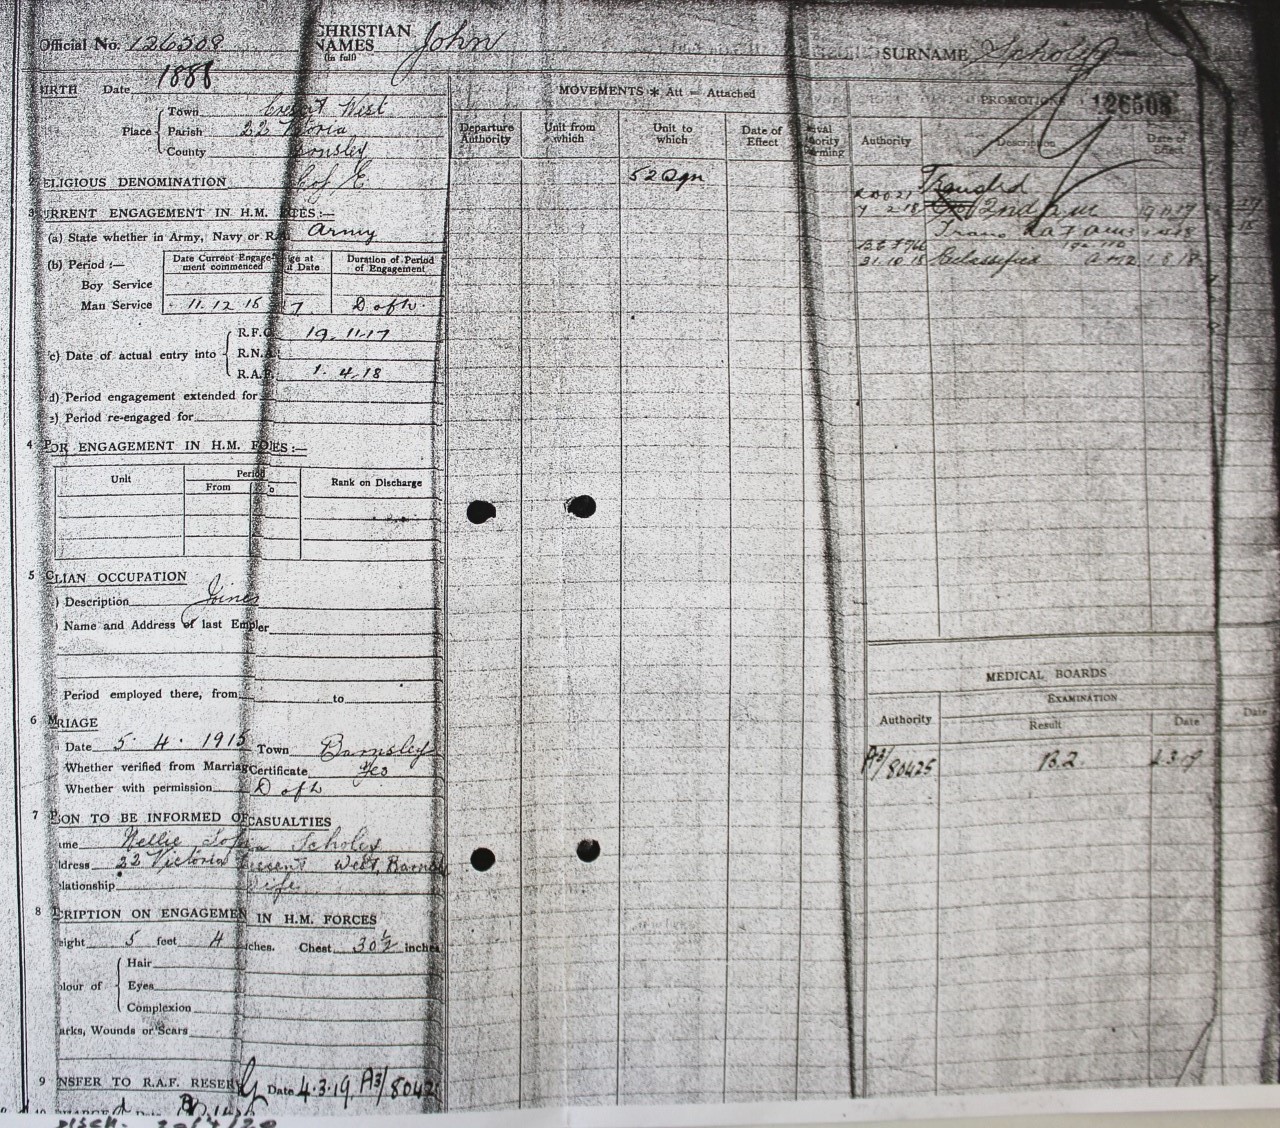 Official No. 126508 CHRISTIAN NAMES (in full) John SURNAME Scholey
BIRTH Date 1888
Place Town Crescent West
Parish 22 Victoria
County
ELIGIOUS DENOMINATION C of E
3 URRENT ENGAGEMENT IN H.M. :—
(a) State whether in Army, Navy or R.A. Army
(b) Period :— Date Current Engage-ment commenced Duration of Period of Engagement
Boy Service
Man Service 11.12.15 D of W.
R.F.C. 19.11.17
c) Date of actual entry into R.N.A.
R.A.F. 1.4.18
d) Period engagement extended for
e) Period re-engaged for
4 OR ENGAGEMENT IN H.M. :—
Unit Period From Rank on Discharge
5 CLIAN OCCUPATION
) Description Joiner
) Name and Address of last Empler
Period employed there, from to
6 MRIAGE
Date 5.4.1915 Town Barnsley
Whether verified from Marriag Certificate Yes
Whether with permission
7 PON TO BE INFORMED OF CASUALTIES
ame Nellie Scholey
ddress 22 Victoria Crescent West, Barnsley
elationship Wife
8 CRIPTION ON ENGAGEMEN IN H.M. FORCES
eight 5 feet 4 ches. Chest 30½ inches
olour of Hair
Eyes
Complexion
arks, Wounds or Scars
9 NSFER TO R.A.F. RESERV Date 4.3.19. A3/80425
MOVEMENTS * Att = Attached
Departure Authority Unit from which Unit to which Date of Effect
52 Sqn
PROMOTIONS 126508
Authority Description Date of Effect
Transfd
2nd a m
Trans
31.10.18 Classified 1.8.18
MEDICAL BOARDS
EXAMINATION
Authority Result Date Date
A3/80425 B.2.